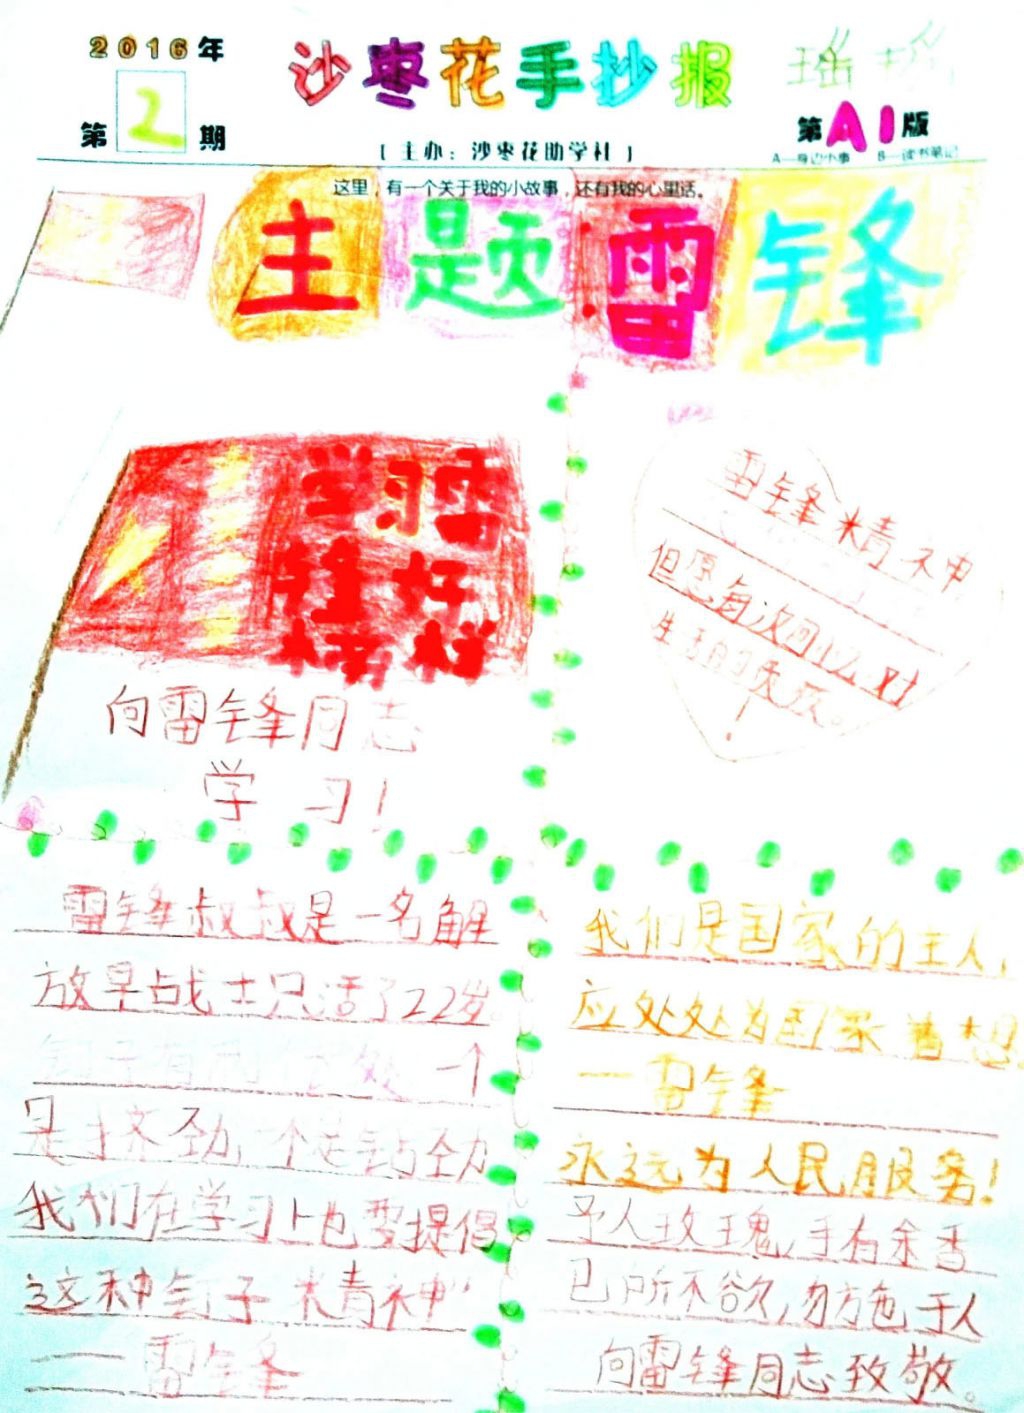 2016年
第2期
沙枣花手抄报
【主办：沙枣花助学社】
第A1版
A—身边小事 B—读书笔记
这里，有一个关于我的小故事，还有我的心里话。
主题：雷锋
学习雷
锋好
榜样
向雷锋同志
学习！
雷锋精神
但愿每次回忆，对
生活的负疚。
！
雷锋叔叔是一名解
放早战士只活了22岁。
钉子有两个长处 一个
是挤劲，一个是钻劲
我们在学习上也要提倡
这种钉子精神”
——雷锋
我们是国家的主人，
应处处为国家着想。
——雷锋
永远为人民服务！
予人玫瑰，手有余香
己所不欲，勿方包于人
向雷锋同志致敬。